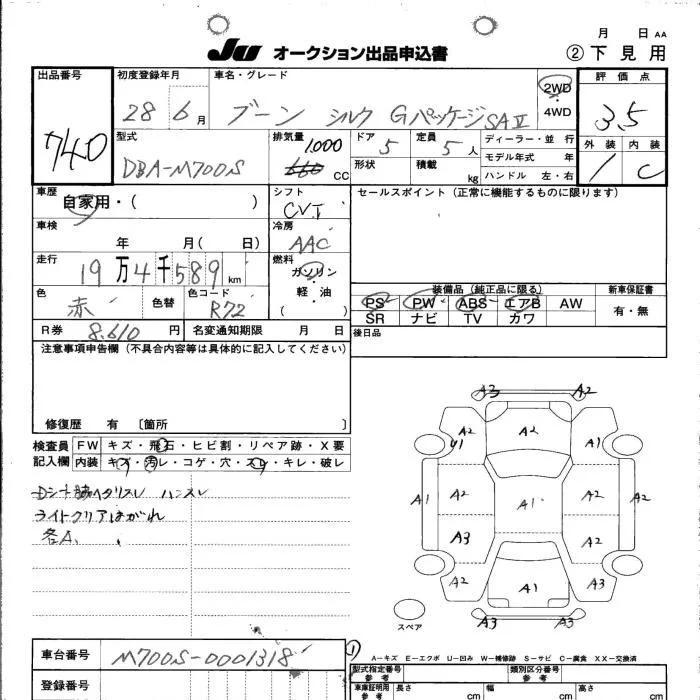 月 日 AA
JU オークション出品申込書 ②下見用
出品番号 初度登録年月 車名・グレード 2WD 評価点
740 28 6月 ブーン シルク Gパッケージ SAⅡ 4WD 3.5
型式 排気量 ドア 定員 ディーラー・並行 外装 内装
DBA-M700S 1,000 660 cc 5 5人 モデル年式 年 1 C
形状 積載 kg ハンドル 左・右
車歴 シフト セールスポイント(正常に機能するものに限ります)
自家用・( ) CVT
車検 冷房
年 月( 日) AAC
走行 燃料
19万4千589km ガソリン
軽・油
( )
色 色替 色コード 装備品(純正品に限る) 新車保証書
赤 R72 PS PW ABS エアB AW 有・無
SR ナビ TV カワ
R券 8,610円 名変通知期限 月 日 後日品
注意事項申告欄(不具合内容等は具体的に記入してください)
修復歴 有 〔箇所 〕
検査員 FW キズ・飛石・ヒビ割・リペア跡・X要
記入欄 内装 キズ・汚レ・コゲ・穴・スレ・キレ・破レ
ハンスレ
ライトクリアはがれ
各A、
A3 A2
A2 A2 A1
U1
A1 A2 A1 A2 A2
A3 A3
A2 A1 A3
A3 A3
スペア
車台番号 M700S-0001318
①
A-キズ E-エクボ U-凹み W-補修跡 S-サビ C-腐食 XX-交換済
登録番号 型式指定番号 参考 類別区分番号 参考
車庫証明用 参考 長さ cm 幅 cm 高さ cm